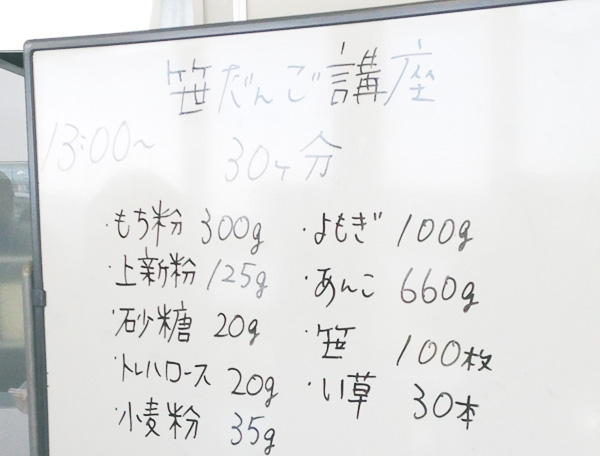 笹だんご講座
13:00~
30ヶ分
・もち粉 300g
・上新粉 125g
・砂糖 20g
・トレハロース 20g
・小麦粉 35g
・よもぎ 100g
・あんこ 660g
・笹 100枚
・い草 30本